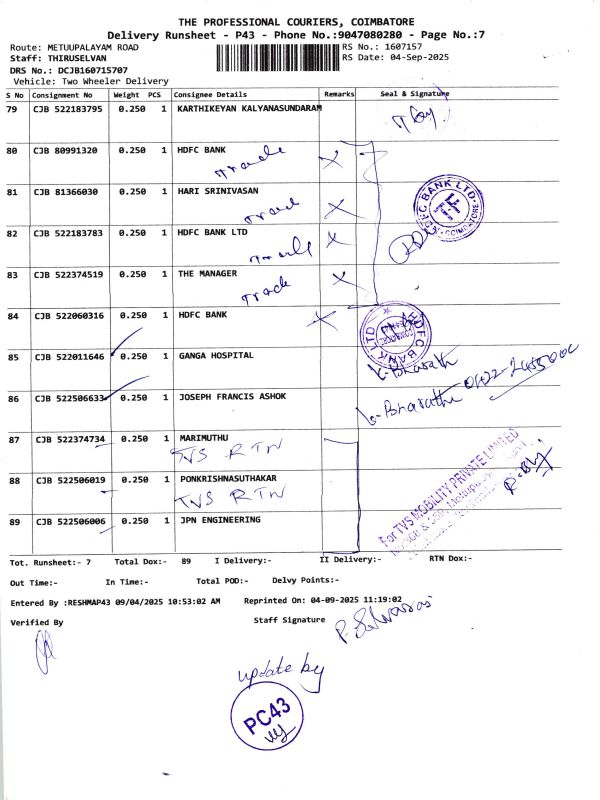 THE PROFESSIONAL COURIERS, COIMBATORE
Delivery Runsheet - P43 - Phone No.:9047080280 - Page No.:7
Route: METUUPALAYAM ROAD RS No.: 1607157
Staff: THIRUSELVAN RS Date: 04-Sep-2025
DRS No.: DCJB160715707
Vehicle: Two Wheeler Delivery
S No Consignment No Weight PCS Consignee Details Remarks Seal & Signature
79 CJB 522183795 0.250 1 KARTHIKEYAN KALYANASUNDARAM
80 CJB 80991320 0.250 1 HDFC BANK
Trade X
81 CJB 81366030 0.250 1 HARI SRINIVASAN
Trade X
HDFC BANK LTD
COIMBATORE
82 CJB 522183783 0.250 1 HDFC BANK LTD X
83 CJB 522374519 0.250 1 THE MANAGER
Trade X
84 CJB 522060316 0.250 1 HDFC BANK X
HDFC BANK LTD
85 CJB 522011646 0.250 1 GANGA HOSPITAL
86 CJB 522506633 0.250 1 JOSEPH FRANCIS ASHOK
87 CJB 522374734 0.250 1 MARIMUTHU
TVS RTN
For TVS MOBILITY PRIVATE LIMITED
88 CJB 522506019 0.250 1 PONKRISHNASUTHAKAR
TVS RTN
89 CJB 522506006 0.250 1 JPN ENGINEERING
Tot. Runsheet:- 7 Total Dox:- 89 I Delivery:- II Delivery:- RTN Dox:-
Out Time:- In Time:- Total POD:- Delvy Points:-
Entered By :RESHMAP43 09/04/2025 10:53:02 AM Reprinted On: 04-09-2025 11:19:02
Verified By Staff Signature
update by
PC43